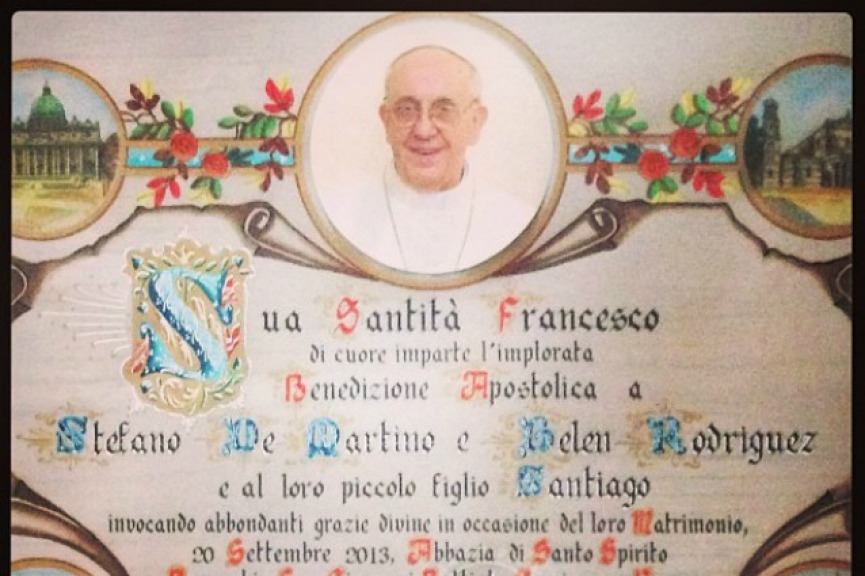 Sua Santità Francesco
di cuore imparte l'implorata
Benedizione Apostolica a
Stefano De Martino e Belen Rodriguez
e al loro piccolo figlio Santiago
invocando abbondanti grazie divine in occasione del loro Matrimonio,
20 Settembre 2013, Abbazia di Santo Spirito